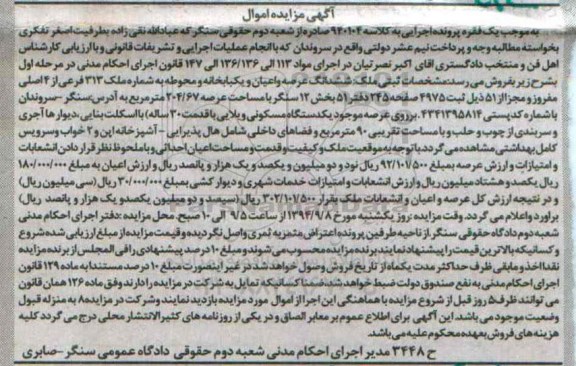 آگهی مزایده اموال
به موجب یک فقره پرونده اجرایی به کلاسه ۹۴۰۱۰۴ صادره از شعبه دوم حقوقی سنگر که عبدالله نقی زاده بطرفیت اصغر تفکری
بخواسته مطالبه وجه و پرداخت نیم عشر دولتی واقع در سروندان که با انجام عملیات اجرایی و تشریفات قانونی و با ارزیابی کارشناس
اهل فن و منتخب دادگستری اقای اکبر نصرتیان در اجرای مواد ۱۱۳ الی ۱۳۶/۱۲۶ الی ۱۴۷ قانون اجرای احکام مدنی در مرحله اول
بشرح زیر بفروش می رسد: مشخصات ثبتی ملک ششدانگ عرصه واعیان و یکبابخانه و محوطه به شماره ملک ۳۱۳ فرعی از ۴ اصلی
مفروز و مجزا از ۵۱ ذیل ثبت ۴۹۷۵ صفحه ۲۴۵ دفتر ۵۱ بخش ۱۲ سنگر با مساحت عرصه ۲۰۴/۶۷ مترمربع به آدرس: سنگر - سروندان
با شماره کدپستی ۴۳۴۱۳۹۵۸۱۴ . برروی عرصه موجود یکدستگاه مسکونی ویلایی با قدمت ۳۰ ساله) با اسکلت بنایی، دیوارها آجری
و سربندی از چوب و حلب و با مساحت تقریبی ۹۰ مترمربع و فضاهای داخلی شامل هال پذیرایی - آشپزخانه اپن و ۲ خواب و سرویس
کامل بهداشتی مشاهده می گردد با توجه به موقعیت ملک و کیفیت و قدمت و مساحت اعیان احداثی و با ملحوظ نظر قرار دادن انشعابات
و امتیازات و ارزش عرصه بمبلغ ۹۲/۱۰۷/۵۰۰ ریال نود و دو میلیون و یکصد و یک هزار و پانصد ریال و ارزش اعیان به مبلغ ۱۸۰/۰۰۰/۰۰۰
ریال یکصد و هشتاد میلیون ریال و ارزش انشعابات و امتیازات خدمات شهری و دیوار کشی بمبلغ ۳۰/۰۰۰/۰۰۰ ریال (سی میلیون ریال)
و در نتیجه ارزش کل عرصه و اعیان و انشعابات ملک بقرار ۳۰۲/۱۰۷/۵۰۰ ریال (سیصد و دو میلیون یکصدو یک هزار و پانصد ریال)
برآورد واعلام می گردد. وقت مزایده: روز یکشنبه مورخ ۱۳۹۴/۹/۸ از ساعت ۹/۵ الی ۱۰ صبح. محل مزایده :دفتر اجرای احکام مدنی
شعبه دوم دادگاه حقوقی سنگر. از ناحیه طرفین پرونده اعتراض مثمر به ثمری واصل نگردیده و قیمت مزایده از مبلغ ارزیابی شده شروع
و کسانیکه بالاترین قیمت را پیشنهاد نمایند برنده مزایده محسوب می شوند و مبلغ ۱۰ درصد پیشنهادی را فی المجلس از برنده مزایده
نقدا اخذ و مابقی ظرف حداکثر مدت یکماه از تاریخ فروش وصول خواهد شد در غیر اینصورت مبلغ ۱۰ درصد مستندا به ماده ۱۲۹ قانون
اجرای احکام مدنی به نفع صندوق دولت ضبط خواهد شد ضمنا کسانیکه تمایل به شرکت در مزایده را دارند وفق ماده ۱۲۶ همان قانون
می توانند ظرف ۵ روز قبل از شروع مزایده با هماهنگی این اجرا از اموال مورد مزایده بازدید نمایند و شرکت در مزایده به منزله قبول
وضعیت موجود می باشد. این آگهی برای اطلاع عموم بر معابر الصاق و در یکی از روزنامه های کثیر الانتشار محلی درج می گردد کلیه
هزینه های فروش بعهده محکوم علیه می باشد.
ح ۳۴۴۸ مدیر اجرای احکام مدنی شعبه دوم حقوقی دادگاه عمومی سنگر - صابری